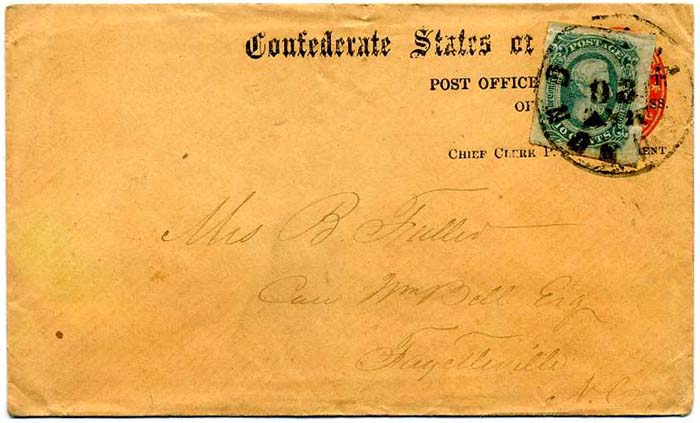 Confederate States of
POST OFFICE
OF
SS.
CHIEF CLERK P.
ENT
POSTAGE
10 CENTS
Mrs B. Fuller
Care Wm Bell Esq
Fayetteville
N.C.